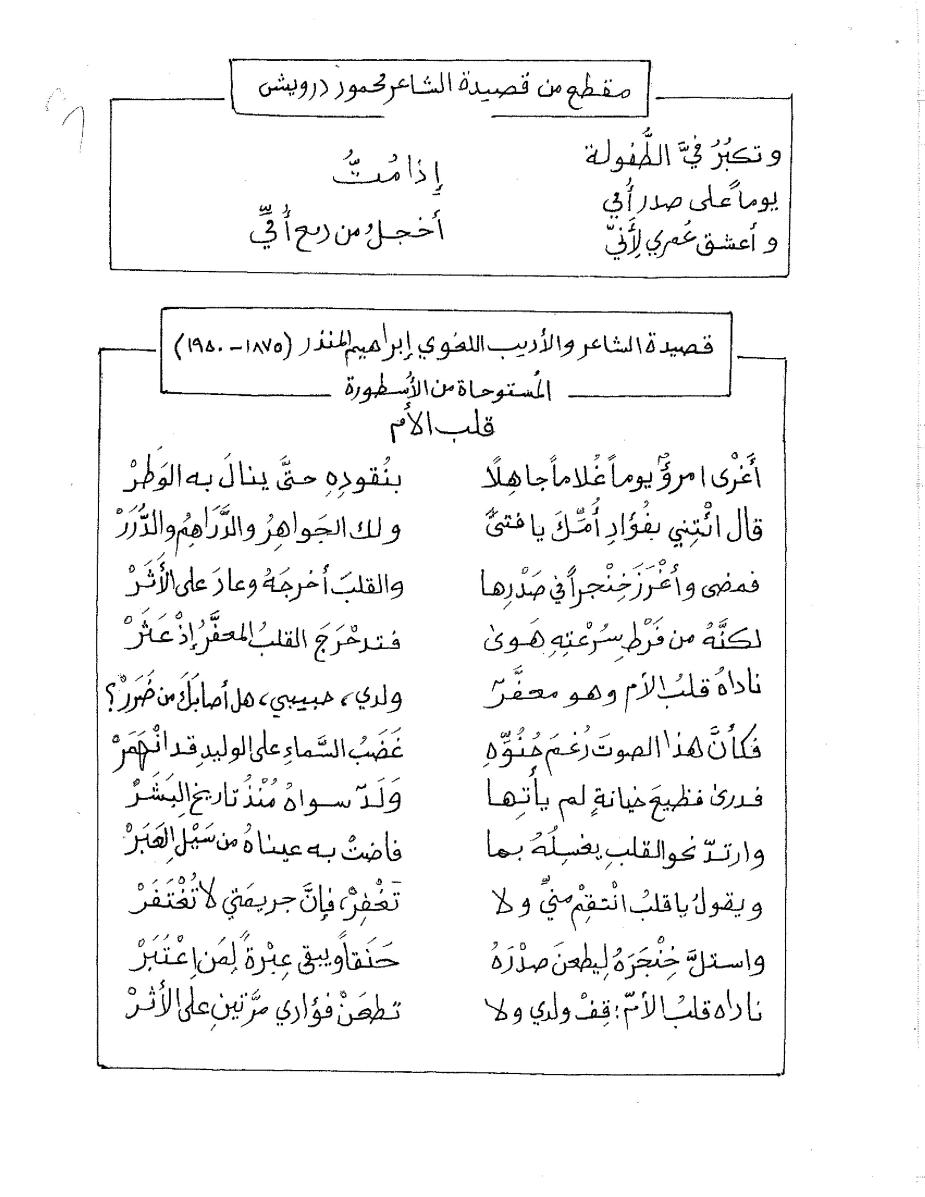 مقطع من قصيدة الشاعر محمود درويش
وتكبُرُ فيَّ الطُّفولة
يوماً على صدر أُمي
وأعشق عُمري لِأَنيّ
إِذا مُتُّ
أخجلُ من دمع أُمّي
قصيدة الشاعر والأديب اللغوي إبراهيم المنذر (١٨٧٥-١٩٥٠)
المُستوحاة من الأُسطورة
قلب الأُم
أَغْرى امرؤٌ يوماً غُلاماً جاهِلًا بنُقودِهِ حتَّى ينالَ به الوَطَرْ
قال ائْتِني بفُؤَادِ أُمِّكَ يا فتىً ولك الجَواهِرُ والدَّرَاهِمُ والدُّرَرْ
فمضى وأغْرَزَ خِنْجراً في صَدْرِها والقلبَ أخرجَهُ وعادَ على الأَثَرْ
لكنَّهُ من فَرْطِ سُرْعَتِهِ هَوىٰ فتدحْرَجَ القلبُ المعفَّرُ إذْ عَثَرْ
ناداهُ قلبُ الأم وهو معفَّرٌ ولدي، حبيبي، هل أصابَكَ من ضَرَرْ؟
فكأنَّ هذا الصوتَ رُغمَ حُنُوِّهِ غَضَبُ السَّماءِ على الوليدِ قد انْهَمَرْ
فدرىٰ فظيعَ خيانةٍ لم يأتها وَلَدٌ سواهُ مُنْذُ تاريخِ البَشَرْ
وارتدّ نحو القلبِ يغسِلُهُ بما فاضتْ به عيناهُ من سَيْلِ العِبَرْ
ويقولُ يا قلبُ انْتقِمْ منيِّ ولا تَغْفِرْ، فإنَّ جريمتي لا تُغْتَفَرْ
واستلَّ خِنْجَرَهُ لِيطعنَ صدْرَهُ حَنَقاً ويبقى عِبْرةً لِمَن اِعْتَبَرْ
ناداه قلبُ الأمّ: قِفْ ولدي ولا تطعَنْ فؤادي مرَّتينِ على الأثَرْ